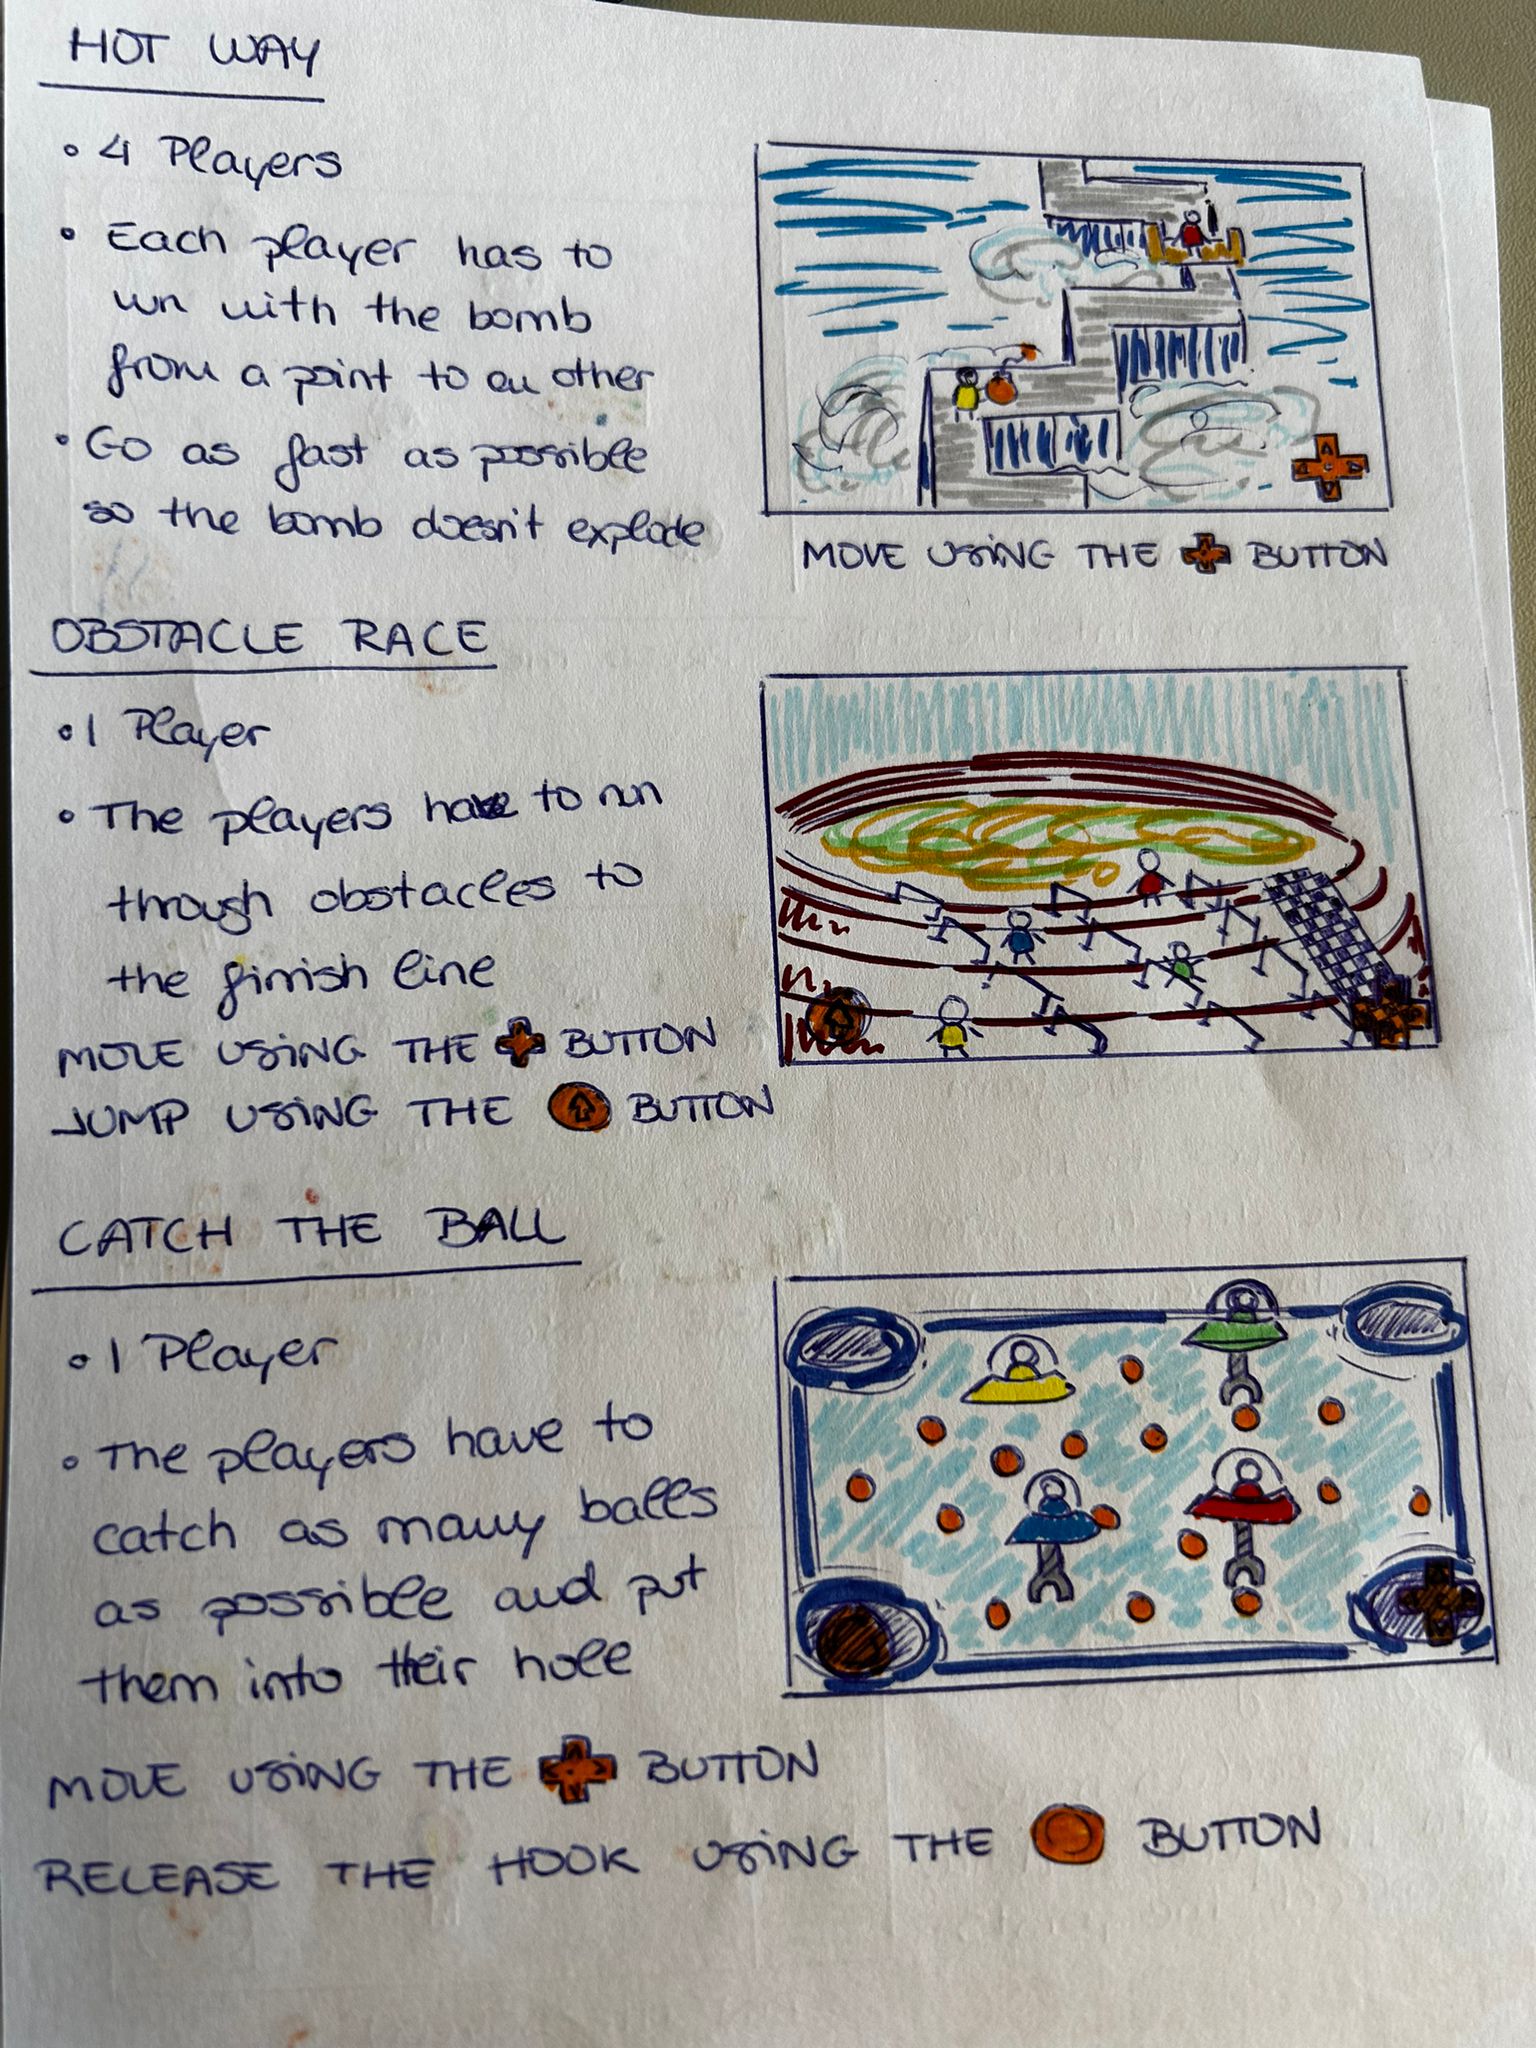 HOT WAY
• 4 Players
• Each player has to
run with the bomb
from a point to an other
• Go as fast as possible
so the bomb doesn't explode
MOVE USING THE BUTTON
OBSTACLE RACE
• 1 Player
• The players have to run
through obstacles to
the finish line
MOVE USING THE BUTTON
JUMP USING THE BUTTON
CATCH THE BALL
• 1 Player
• The players have to
catch as many balls
as possible and put
them into their hole
MOVE USING THE BUTTON
RELEASE THE HOOK USING THE BUTTON